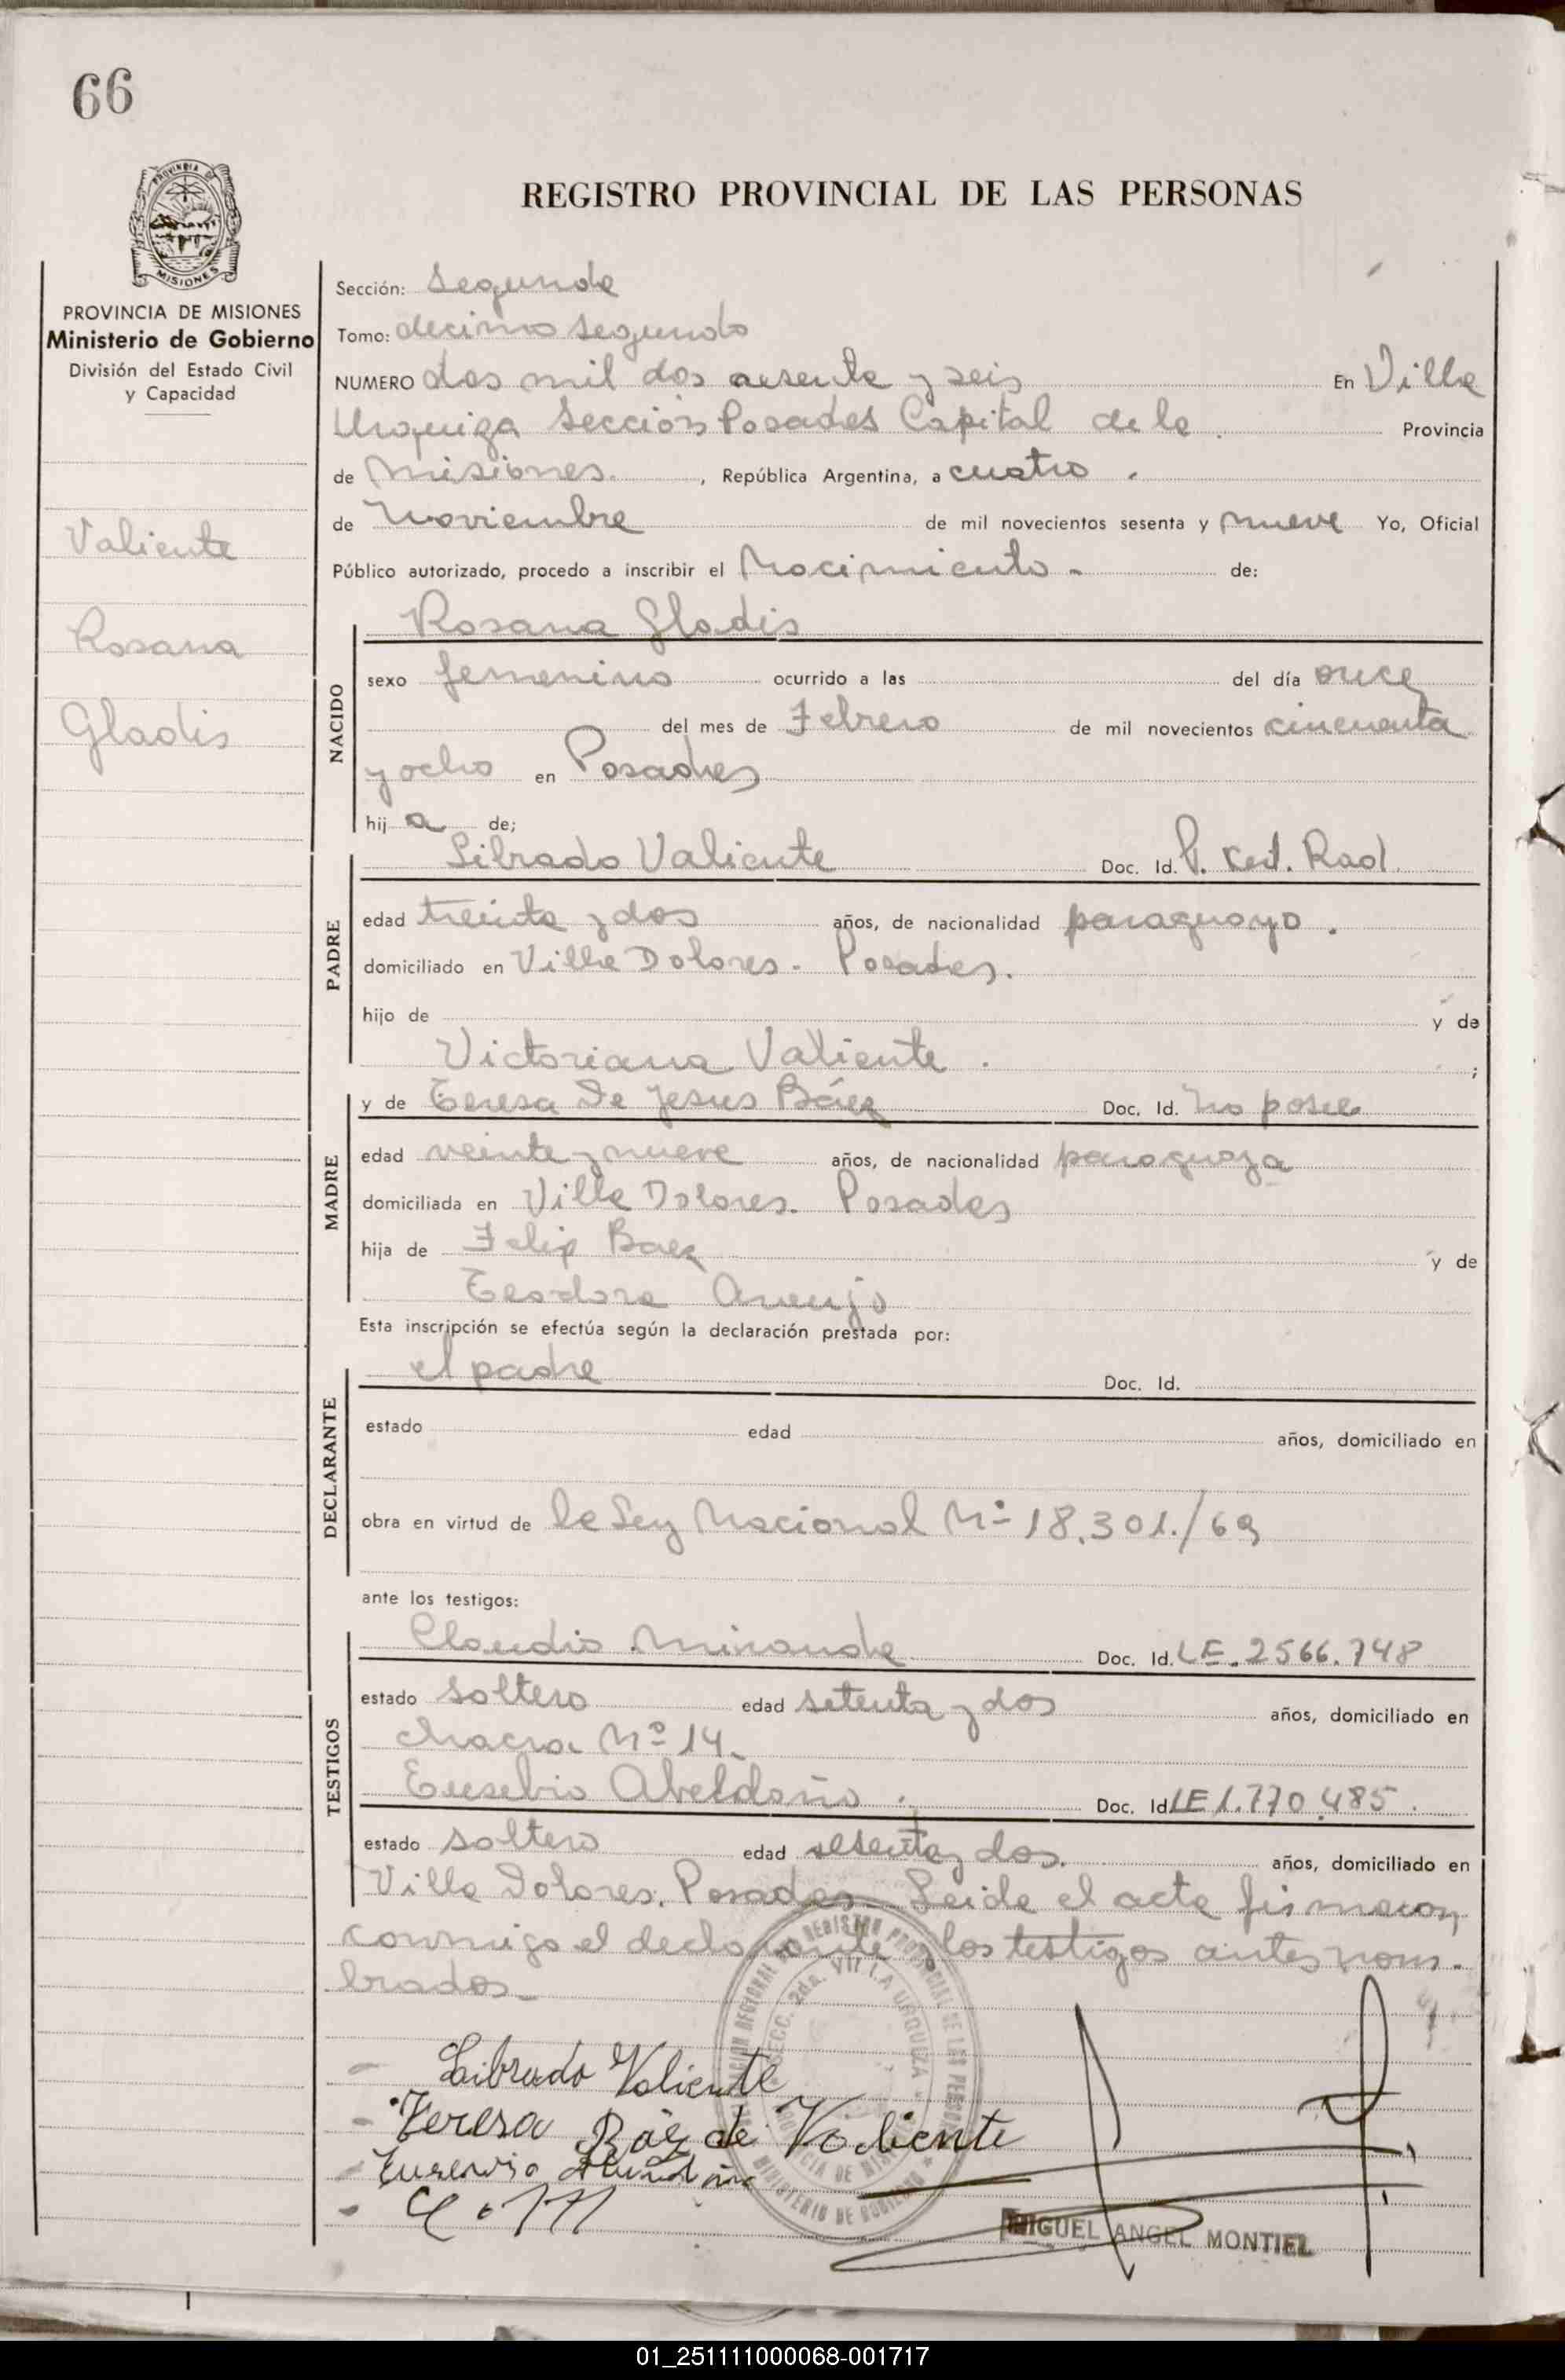 66
PROVINCIA DE
MISIONES
REGISTRO PROVINCIAL DE LAS PERSONAS
PROVINCIA DE MISIONES
Ministerio de Gobierno
División del Estado Civil
y Capacidad
Valiente
Rosana
Gladis
Sección: Segunda
Tomo: decimo segundo
NUMERO dos mil dos sesenta y seis En Villa
Urquiza Sección Posadas Capital de la Provincia
de Misiones , República Argentina, a cuatro
de Noviembre de mil novecientos sesenta y nueve Yo, Oficial
Público autorizado, procedo a inscribir el Nacimiento - de:
NACIDO
Rosana Gladis
sexo femenino ocurrido a las del día once
del mes de Febrero de mil novecientos cincuenta
y ocho en Posadas
hij a de;
PADRE
Librado Valiente Doc. Id. P. Ced. Rad.
edad treinta y dos años, de nacionalidad paraguayo.
domiciliado en Villa Dolores - Posadas.
hijo de y de
Victoriana Valiente . ;
MADRE
y de Teresa De Jesus Báez Doc. Id. No posee
edad veinte y nueve años, de nacionalidad paraguaya
domiciliada en Villa Dolores. Posadas
hija de Felix Baez y de
Teodora Araujo
Esta inscripción se efectúa según la declaración prestada por:
DECLARANTE
el padre Doc. Id.
estado edad años, domiciliado en
obra en virtud de la Ley Nacional Nº 18.301./69
ante los testigos:
TESTIGOS
Claudio Miranda Doc. Id. LE. 2566.748
estado soltero edad setenta y dos años, domiciliado en
chacra Nº 14.
Eusebio Doc. Id. LE 1.770.485.
estado soltero edad sesenta y dos. años, domiciliado en
Villa Dolores. Posadas. Leida el acta firmaron
conmigo el declarante y los testigos antes nom-
brados-
REGISTRO PROVINCIAL DE LAS PERSONAS
SECC. 2da. VILLA URQUIZA
MINISTERIO DE GOBIERNO
- Librado Valiente
- Teresa Báez de Valiente
- C. M
MIGUEL ANGEL MONTIEL
01_251111000068-001717